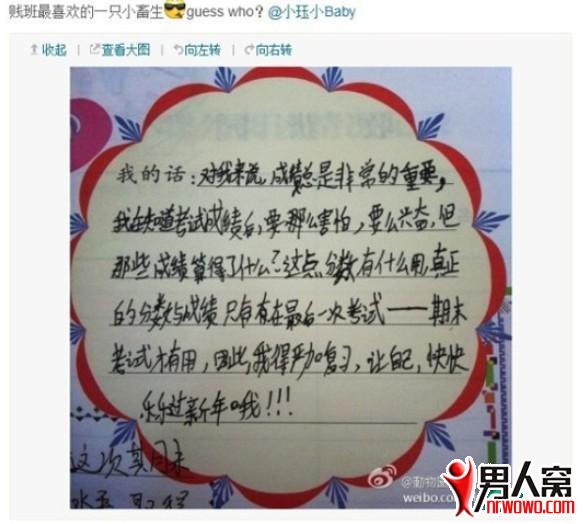 贱班最喜欢的一只小畜生guess who？@小珏小Baby
收起 查看大图 向左转 向右转
我的话：对我来说,成绩总是非常的重要,
我在知道考试成绩后,要那么害怕,要么兴奋,但
那些成绩算得了什么?这点分数有什么用,真正
的分数与成绩只有在最后一次考试——期末
考试才有用,因此,我得严加复习,让自己,快快
乐乐过新年哦!!!
这次其月末
weibo.com
男人窝
nrwowo.com